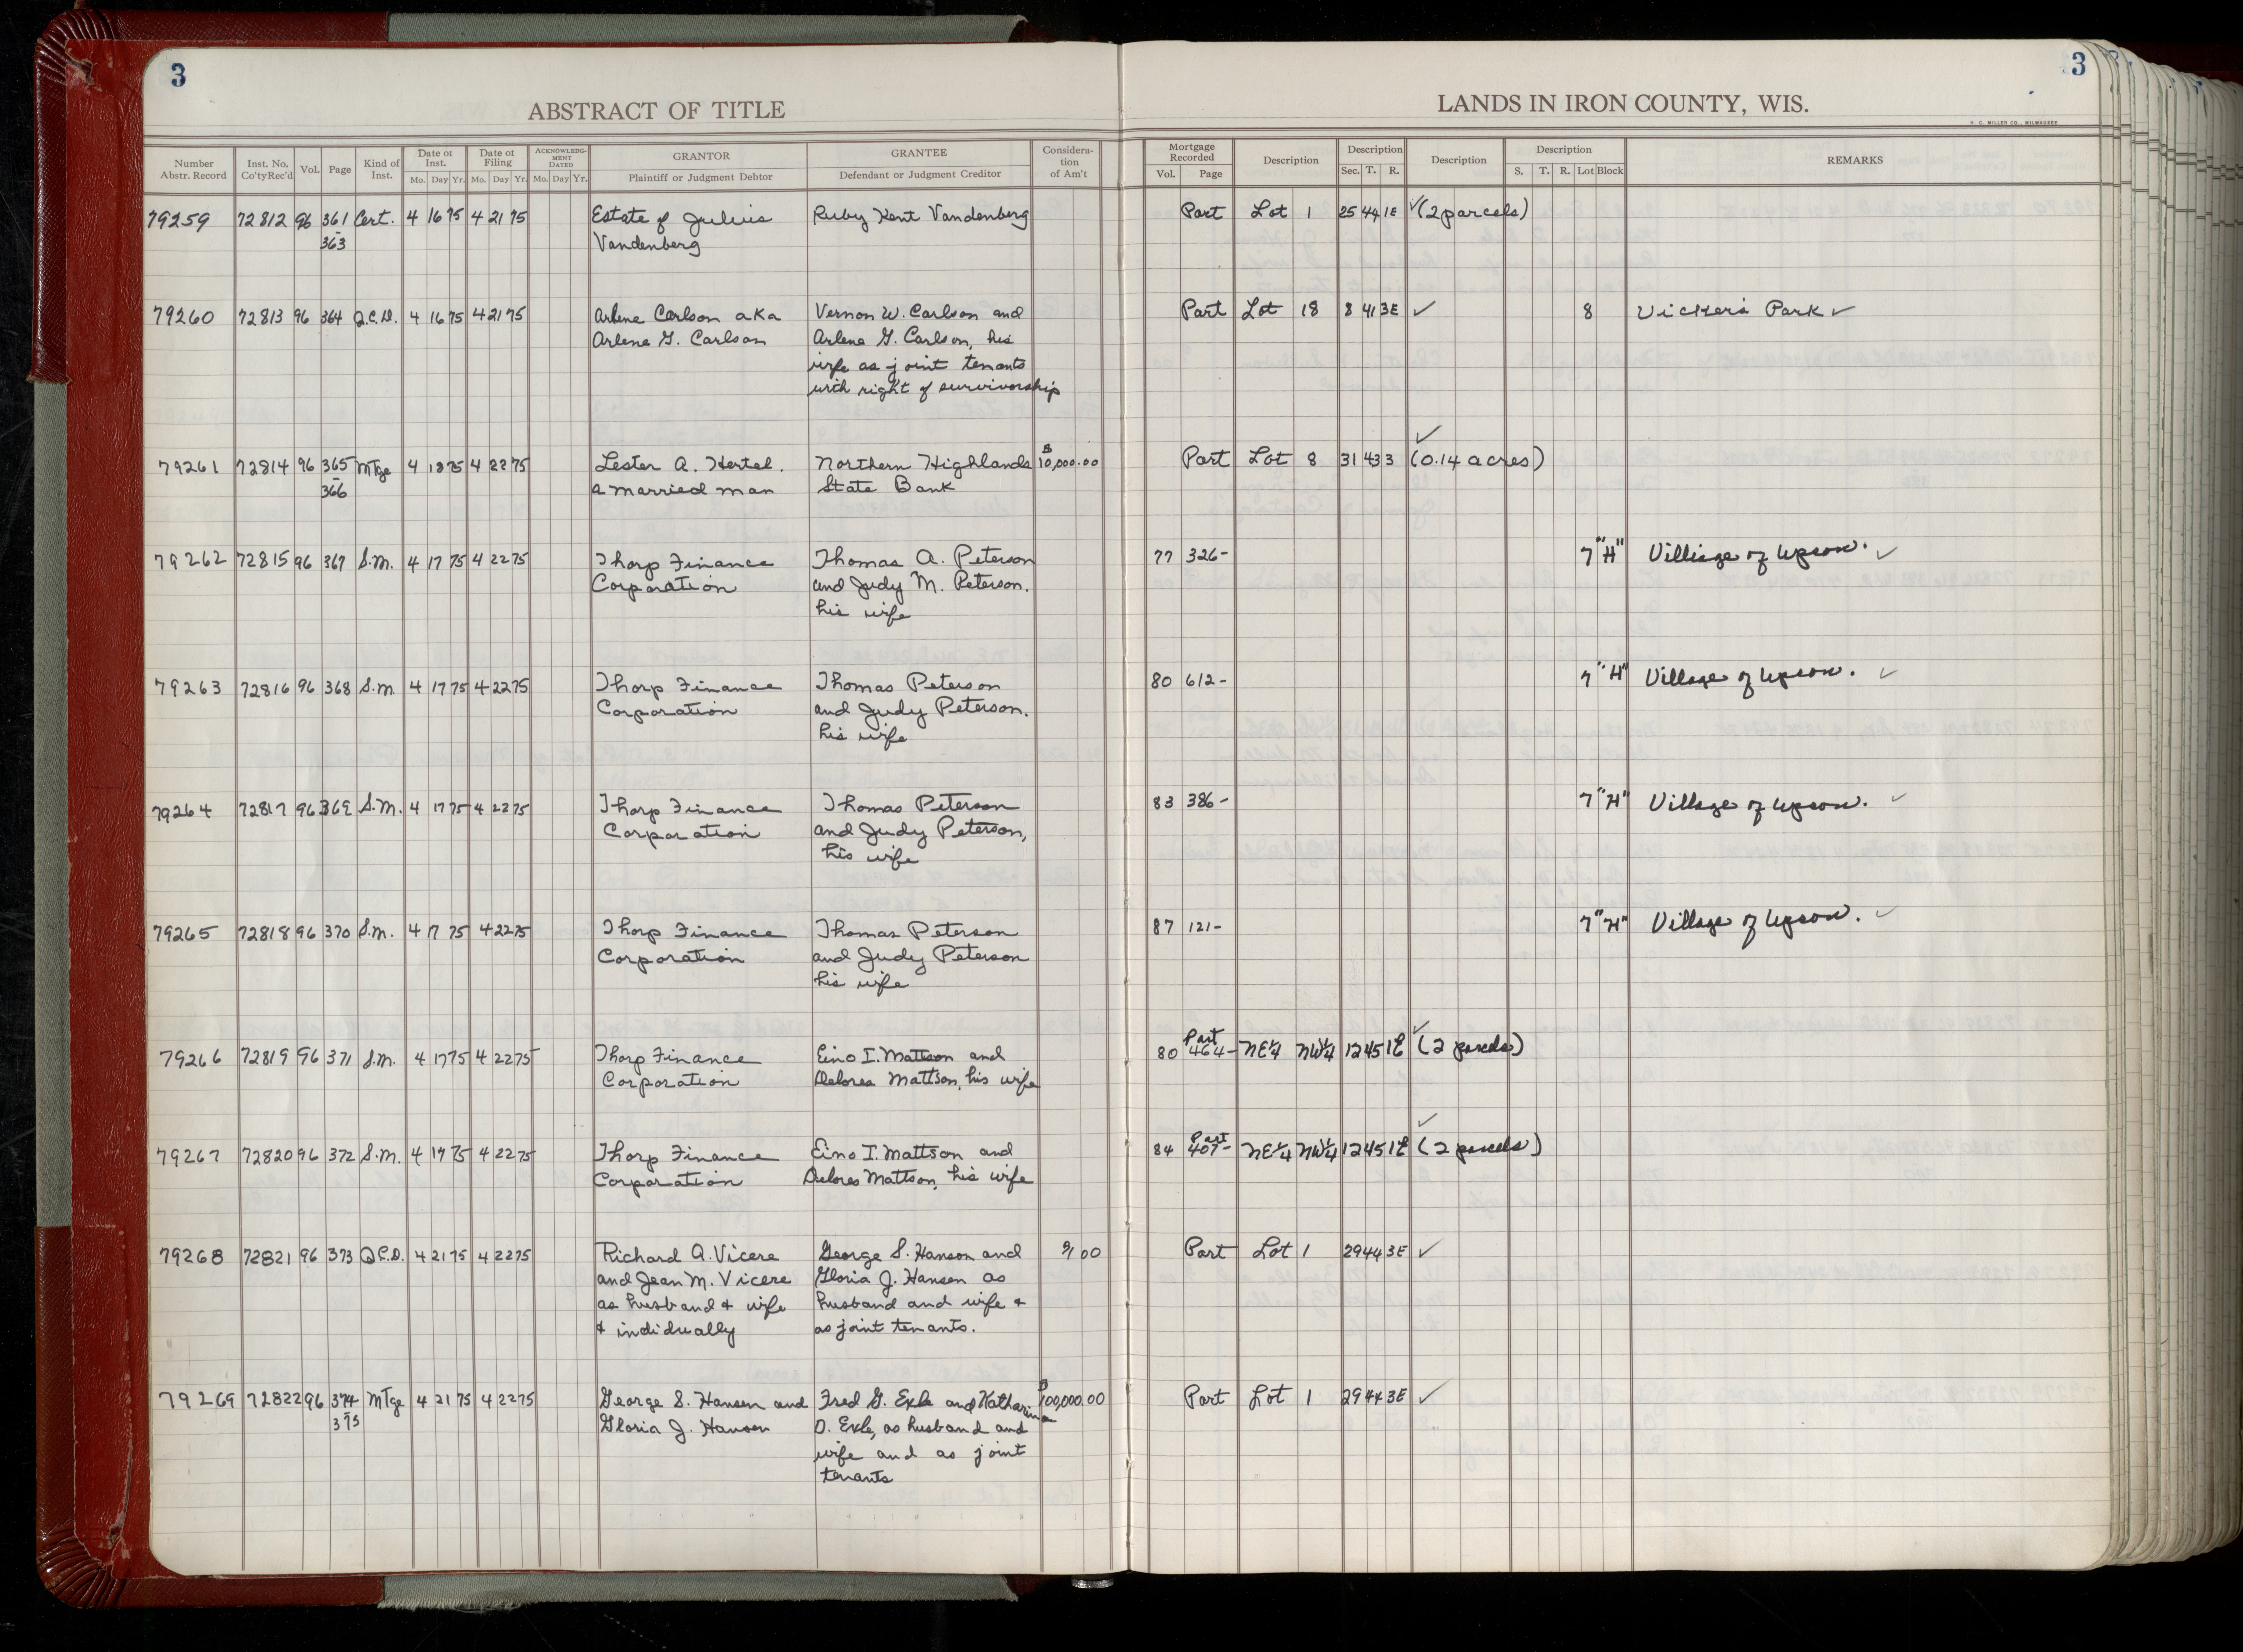 3
3
ABSTRACT OF TITLE
LANDS IN IRON COUNTY, WIS.
H. C. MILLER CO., MILWAUKEE
Number Abstr. Record | Inst. No. Co'ty Rec'd | Vol. | Page | Kind of Inst. | Date of Inst. Mo. Day Yr. | Date of Filing Mo. Day Yr. | ACKNOWLEDGMENT DATED Mo. Day Yr. | GRANTOR Plaintiff or Judgment Debtor | GRANTEE Defendant or Judgment Creditor | Consideration of Am't | Mortgage Recorded Vol. Page | Description | Description Sec. T. R. | Description | Description S. T. R. Lot Block | REMARKS
79259 72812 96 361 Cert. 4 16 75 4 21 75 Estate of Julius Ruby Kent Vandenberg Part Lot 1 25 44 1E ✓(2 parcels)
-363 Vandenberg
79260 72813 96 364 Q.C.D. 4 16 75 4 21 75 Arlene Carlson aKa Vernon W. Carlson and Part Lot 18 8 41 3E ✓ 8 Vicker's Park ✓
Arlene G. Carlson Arlene G. Carlson, his
wife as joint tenants
with right of survivorship
79261 72814 96 365 Mtge 4 18 75 4 22 75 Lester A. Hertel. Northern Highlands $10,000.00 Part Lot 8 31 43 3 ✓ (0.14 acres)
-366 a married man State Bank
79262 72815 96 367 S.M. 4 17 75 4 22 75 Thorp Finance Thomas A. Peterson 77 326- 7 "H" Villiage of Upson. ✓
Corporation and Judy M. Peterson.
his wife
79263 72816 96 368 S.M. 4 17 75 4 22 75 Thorp Finance Thomas Peterson 80 612- 7 "H" Village of Upson. ✓
Corporation and Judy Peterson.
his wife
79264 72817 96 369 S.M. 4 17 75 4 22 75 Thorp Finance Thomas Peterson 83 386- 7 "H" Village of Upson. ✓
Corporation and Judy Peterson,
his wife
79265 72818 96 370 S.M. 4 17 75 4 22 75 Thorp Finance Thomas Peterson 87 121- 7 "H" Village of Upson. ✓
Corporation and Judy Peterson
his wife
79266 72819 96 371 S.M. 4 17 75 4 22 75 Thorp Finance Eino I. Mattson and 80 464- Part NE¼ NW¼ 12 45 1E ✓ (2 parcels)
Corporation Delores Mattson, his wife
79267 72820 96 372 S.M. 4 17 75 4 22 75 Thorp Finance Eino I. Mattson and 84 407- Part NE¼ NW¼ 12 45 1E ✓ (2 parcels)
Corporation Delores Mattson, his wife
79268 72821 96 373 Q.C.D. 4 21 75 4 22 75 Richard A. Vicere George S. Hanson and 1 00 Part Lot 1 29 44 3E ✓
and Jean M. Vicere Gloria J. Hansen as
as husband & wife husband and wife &
& indidually as joint tenants.
79269 72822 96 374 Mtge 4 21 75 4 22 75 George S. Hansen and Fred G. Exle and Katharina $100,000.00 Part Lot 1 29 44 3E ✓
375 Gloria J. Hansen O. Exle, as husband and
wife and as joint
tenants